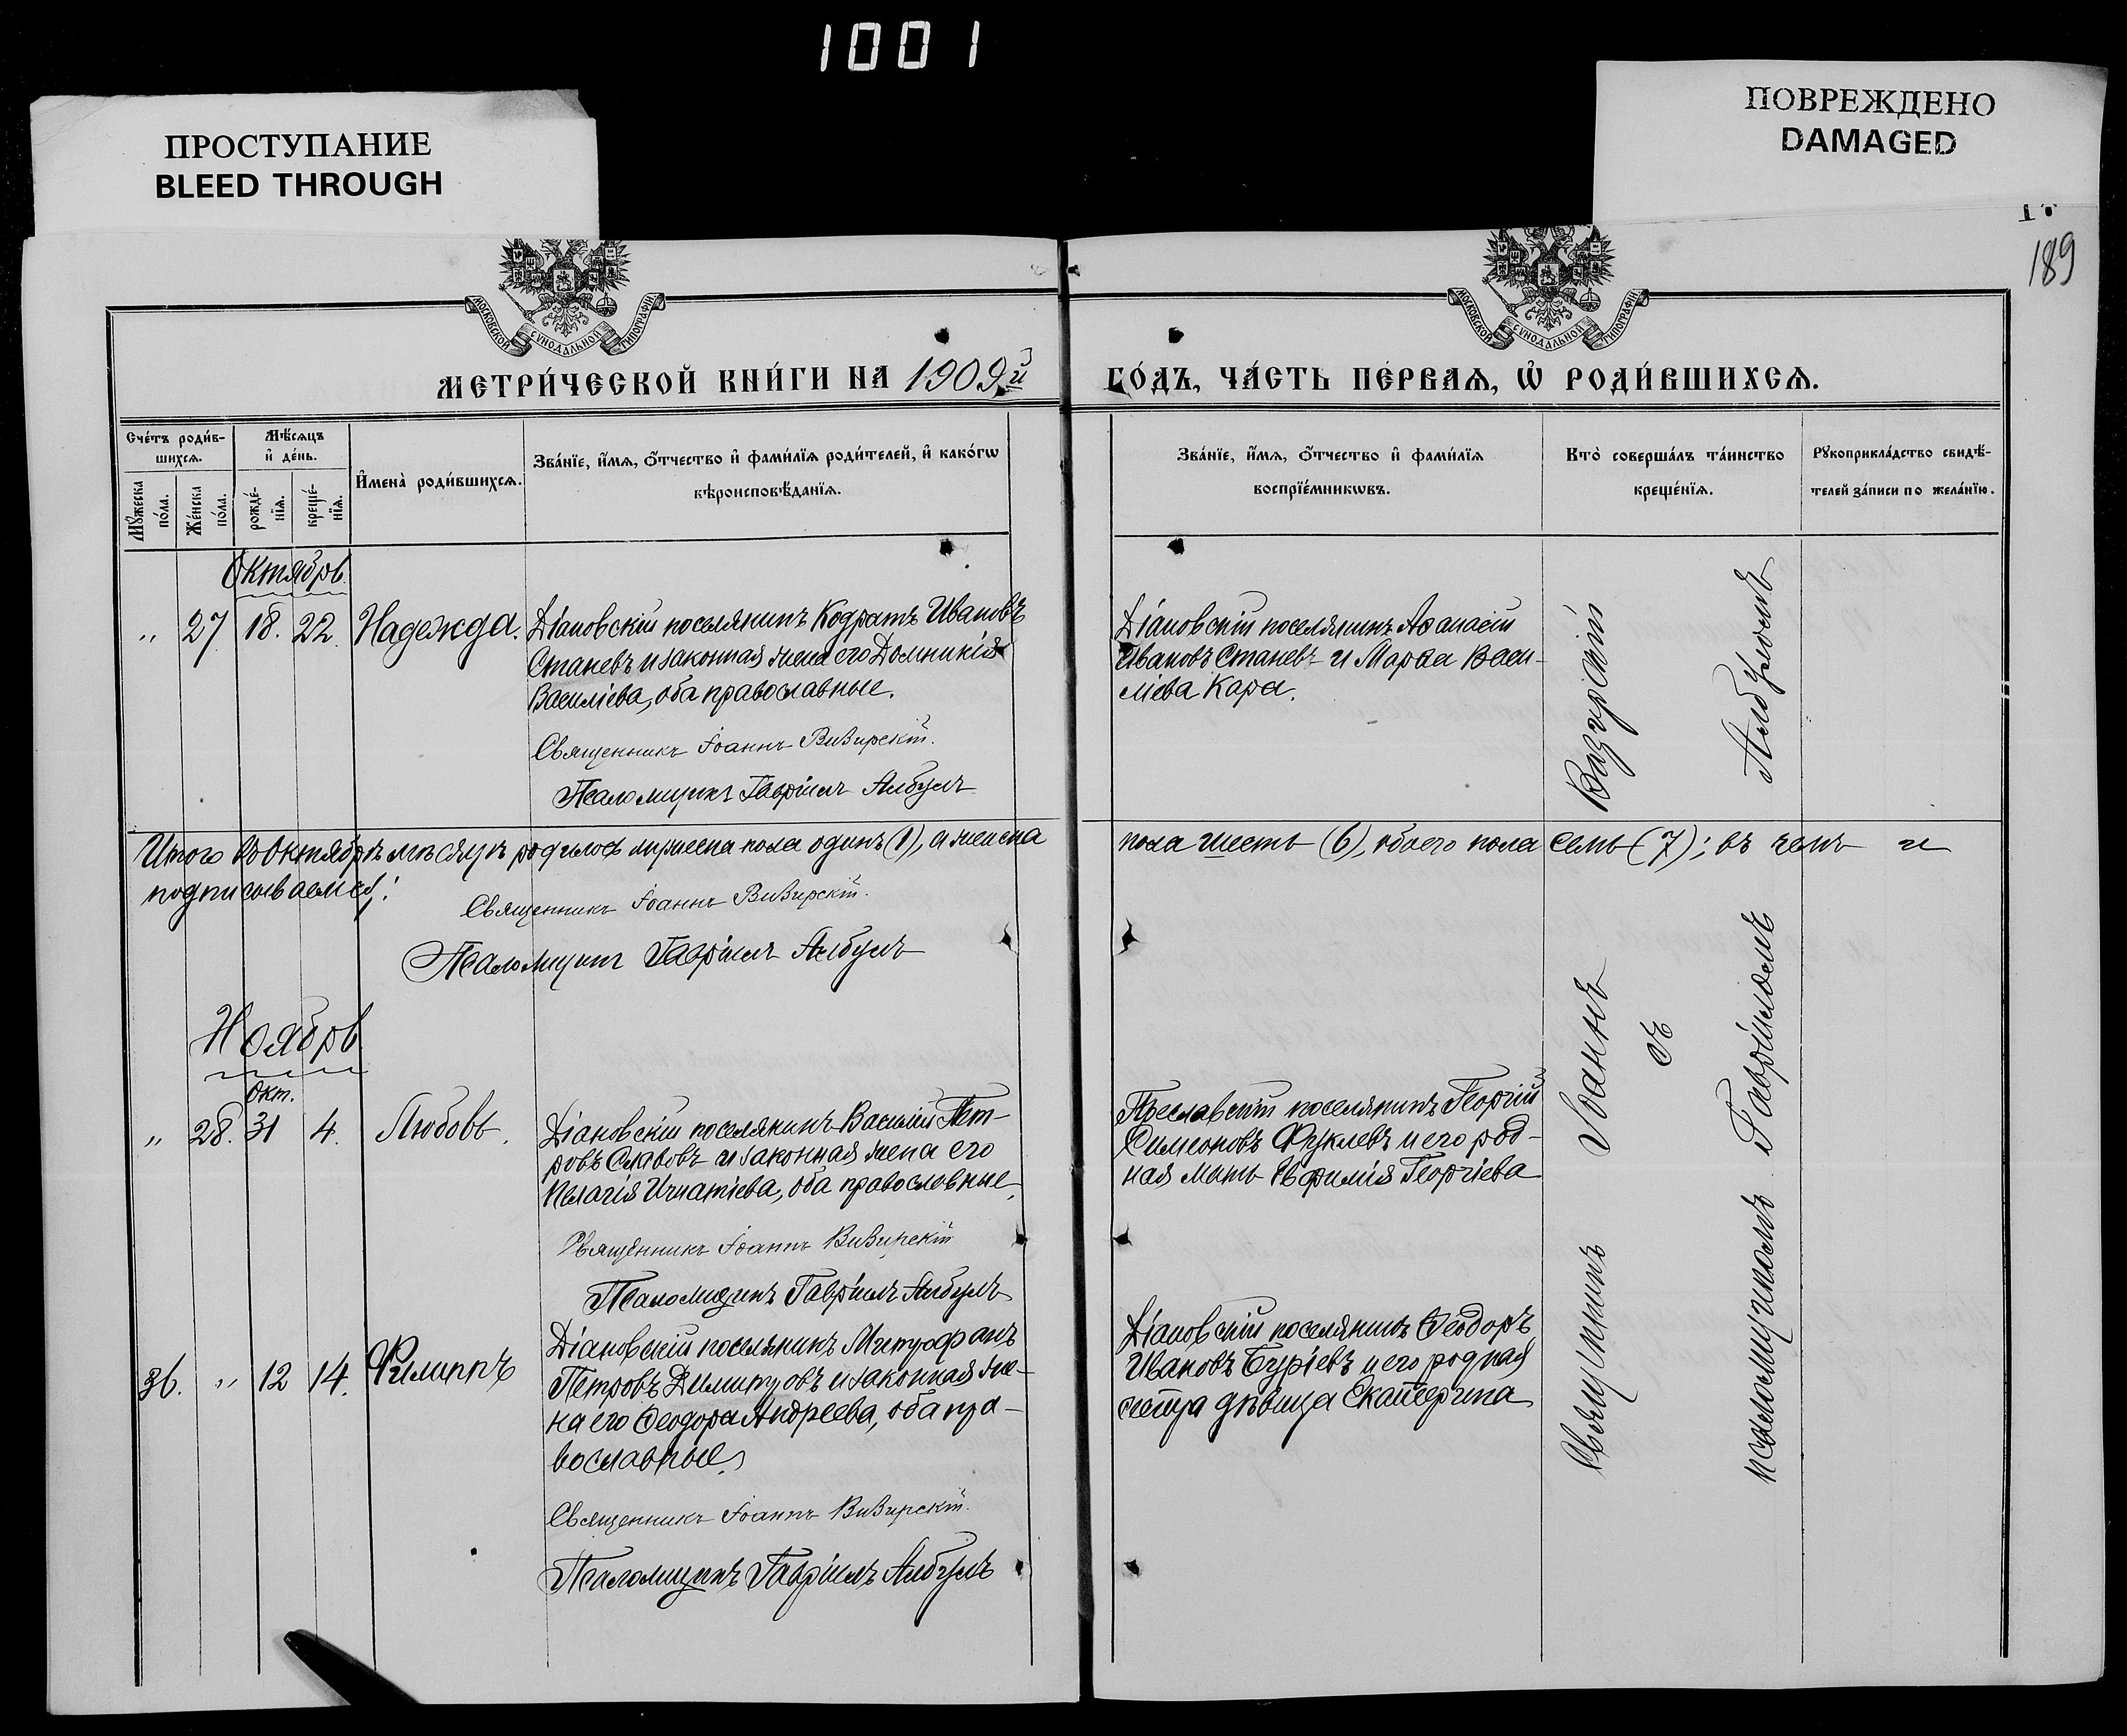 1001
ПРОСТУПАНИЕ
BLEED THROUGH
ПОВРЕЖДЕНО
DAMAGED
189
МОСКОВСКОЙ СѴНОДАЛЬНОЙ ТИПОГРАФІИ
МОСКОВСКОЙ СѴНОДАЛЬНОЙ ТИПОГРАФІИ
МЕТРИ́ЧЕСКОЙ КНИ́ГИ НА 1909й
ГО́ДЪ, ЧА́СТЬ ПЕ́РВАѦ, Ѡ҆ РОДИ́ВШИХСѦ.
Сче́тъ роди́в-
шихсѧ.
Мѣ́сѧцъ
и҆ де́нь.
Мꙋ́жеска
по́ла.
Же́нска
по́ла.
рожде́-
нїѧ.
креще́-
нїѧ.
И҆мена̀ роди́вшихсѧ.
Зва́нїе, и҆́мѧ, ѻ҆́тчество и҆ фами́лїѧ роди́телей, и҆ како́гѡ
вѣроисповѣ́данїѧ.
Зва́нїе, и҆́мѧ, ѻ҆́тчество и҆ фами́лїѧ
воспрїе́мникѡвъ.
Кто̀ соверша́лъ та́инство
креще́нїѧ.
Рꙋкоприкла́дство свидѣ́-
телей за́писи по жела́нїю.
Октябрь
„ 27 18. 22. Надежда.
Діановскій поселянинъ Кодратъ Ивановъ
Станевъ и законная жена его Домникія
Василіева, оба православные.
Священникъ Іоаннъ Визирскій.
Псаломщикъ Гавріилъ Албулъ
Діановскій поселянинъ Аѳанасій
Ивановъ Станевъ и Марѳа Васи-
ліева Кара.
Итого въ Октябрѣ мѣсяцѣ родилось мужеска пола одинъ (1), а женска
пола шесть (6), обоего пола семь (7); въ чемъ и
подписываемся:
Священникъ Іоаннъ Визирскій.
Псаломщикъ Гавріилъ Албулъ
Ноябрь
Окт.
„ 28. 31 4. Любовь.
Діановскій поселянинъ Василій Пет-
ровъ Славовъ и законная жена его
Пелагія Игнатіева, оба православные.
Священникъ Іоаннъ Визирскій
Псаломщикъ Гавріилъ Албулъ
Преславскій поселянинъ Георгій
Симеоновъ Фуклевъ и его род-
ная мать Евфимія Георгіева
36. „ 12 14. Филиппъ
Діановскій поселянинъ Митрофанъ
Петровъ Димитровъ и законная же-
на его Ѳеодора Андреева, оба пра-
вославные.
Священникъ Іоаннъ Визирскій.
Псаломщикъ Гавріилъ Албулъ
Діановскій поселянинъ Ѳеодоръ
Ивановъ Буріевъ и его родная
сестра дѣвица Екатерина
Священникъ Іоаннъ Визирскій
съ
псаломщикомъ Гавріиломъ Албуломъ